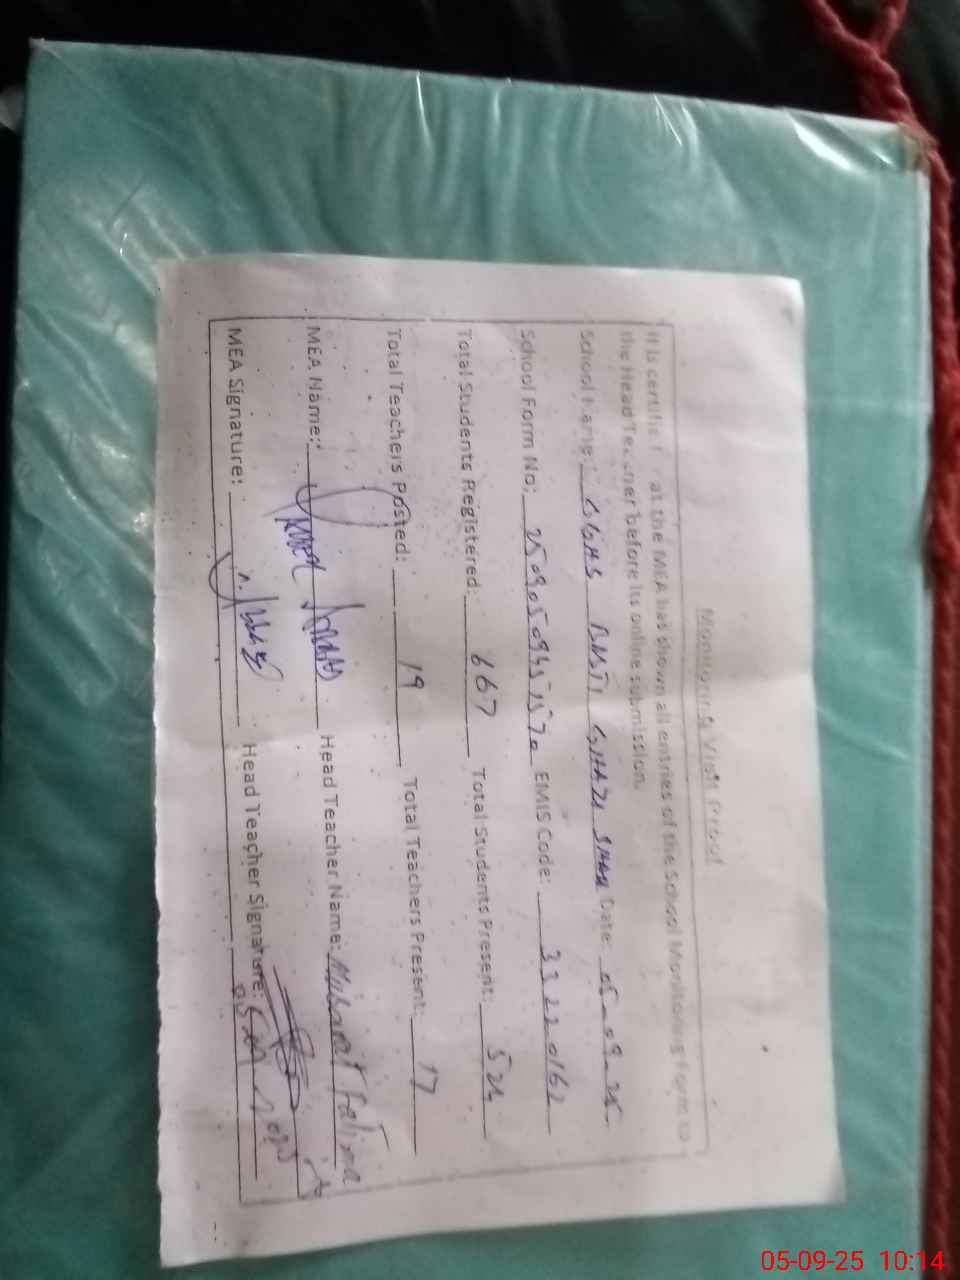 Monitoring Visit Proof
It is certified that the MEA has shown all entries of the School Monitoring Form to
the Head Teacher before its online submission.
School Name: GGHS BASTI GHAZI SHAH Date: 05-09-25
School Form No: EMIS Code: 33220162
Total Students Registered: 667 Total Students Present: 524
Total Teachers Posted: 19 Total Teachers Present: 17
MEA Name: Head Teacher Name: Musarat Fatima
MEA Signature: Head Teacher Signature:
05-09-25 10:14